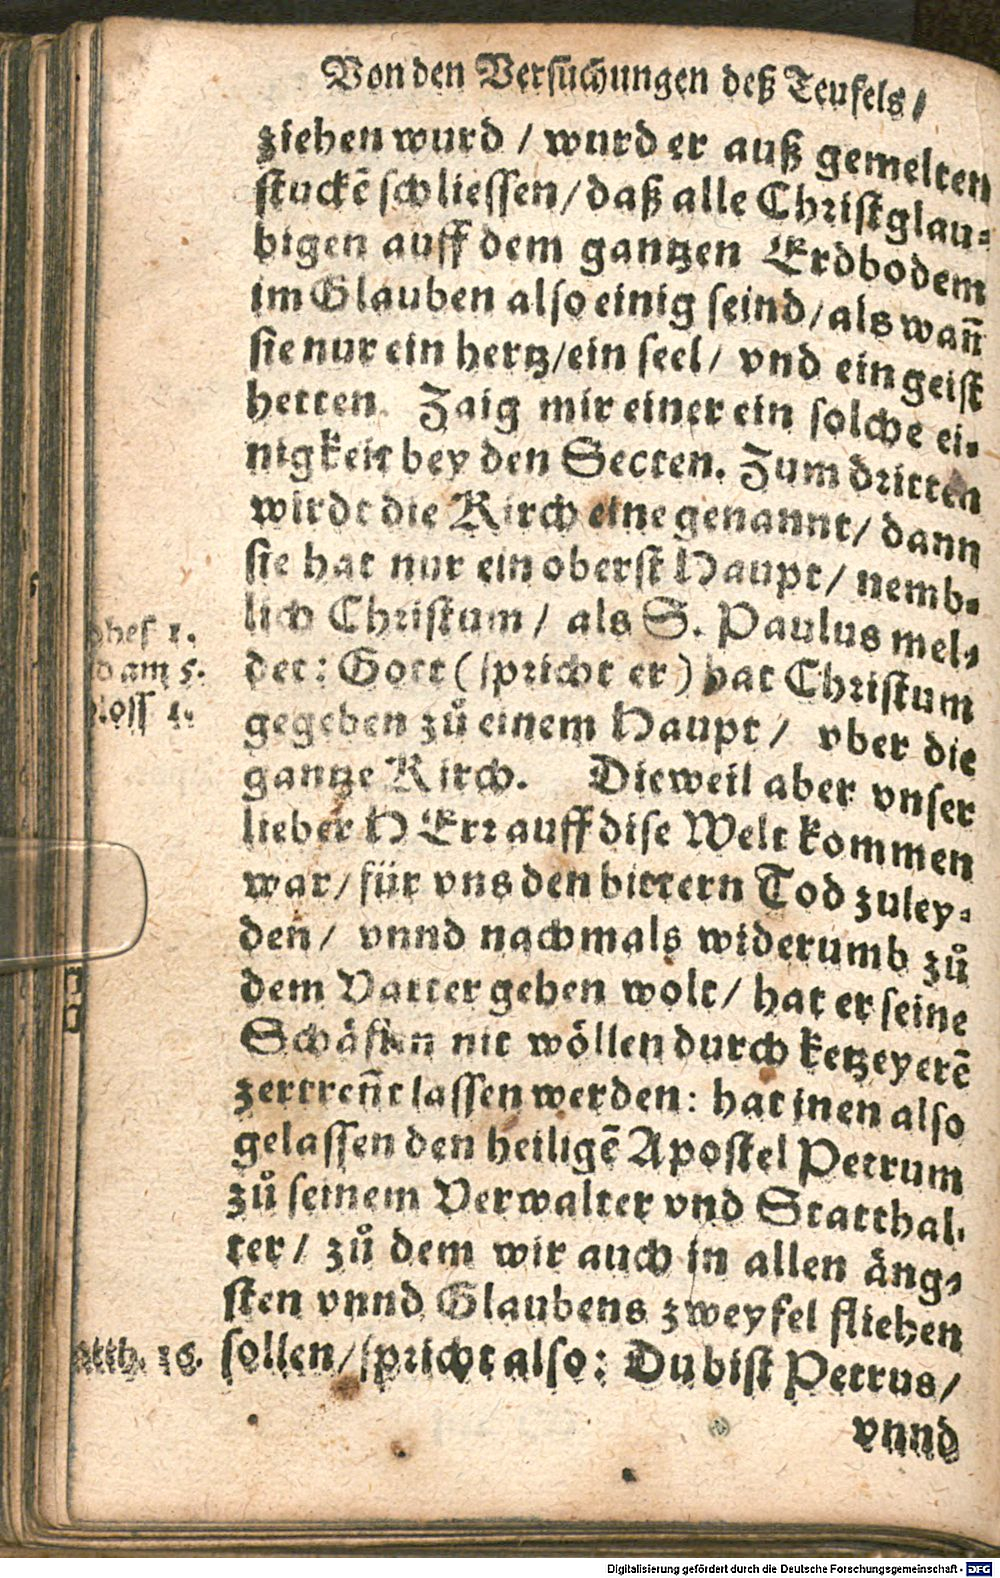 Von den Versuchungen deß Teufels /
ziehen wurd / wurd er auß gemelten
stuckē schliessen / daß alle Christglau-
bigen auff dem gantzen Erdbodem
im Glauben also einig seind / als wañ
sie nur ein hertz / ein seel / vnd ein geist
hetten. Zaig mir einer ein solche ei-
nigkeit bey den Secten. Zum dritten
wirdt die Kirch eine genannt / dann
sie hat nur ein oberst Haupt / nemb-
lich Christum / als S. Paulus mel-
det: Gott ( spricht er ) hat Christum
gegeben zů einem Haupt / vber die
gantze Kirch. Dieweil aber vnser
lieber HErr auff dise Welt kommen
war / für vns den bittern Tod zuley-
den / vnnd nachmals widerumb zů
dem Vatter gehen wolt / hat er seine
Schäflen nit wöllen durch ketzeyerē
zertreñt lassen werden: hat jnen also
gelassen den heiligē Apostel Petrum
zů seinem Verwalter vnd Statthal-
ter / zů dem wir auch in allen äng-
sten vnnd Glaubens zweyfel fliehen
sollen / spricht also: Du bist Petrus /
vnnd
phes 1.
am 5.
loss 1.
atth. 16.
Digitalisierung gefördert durch die Deutsche Forschungsgemeinschaft - DFG